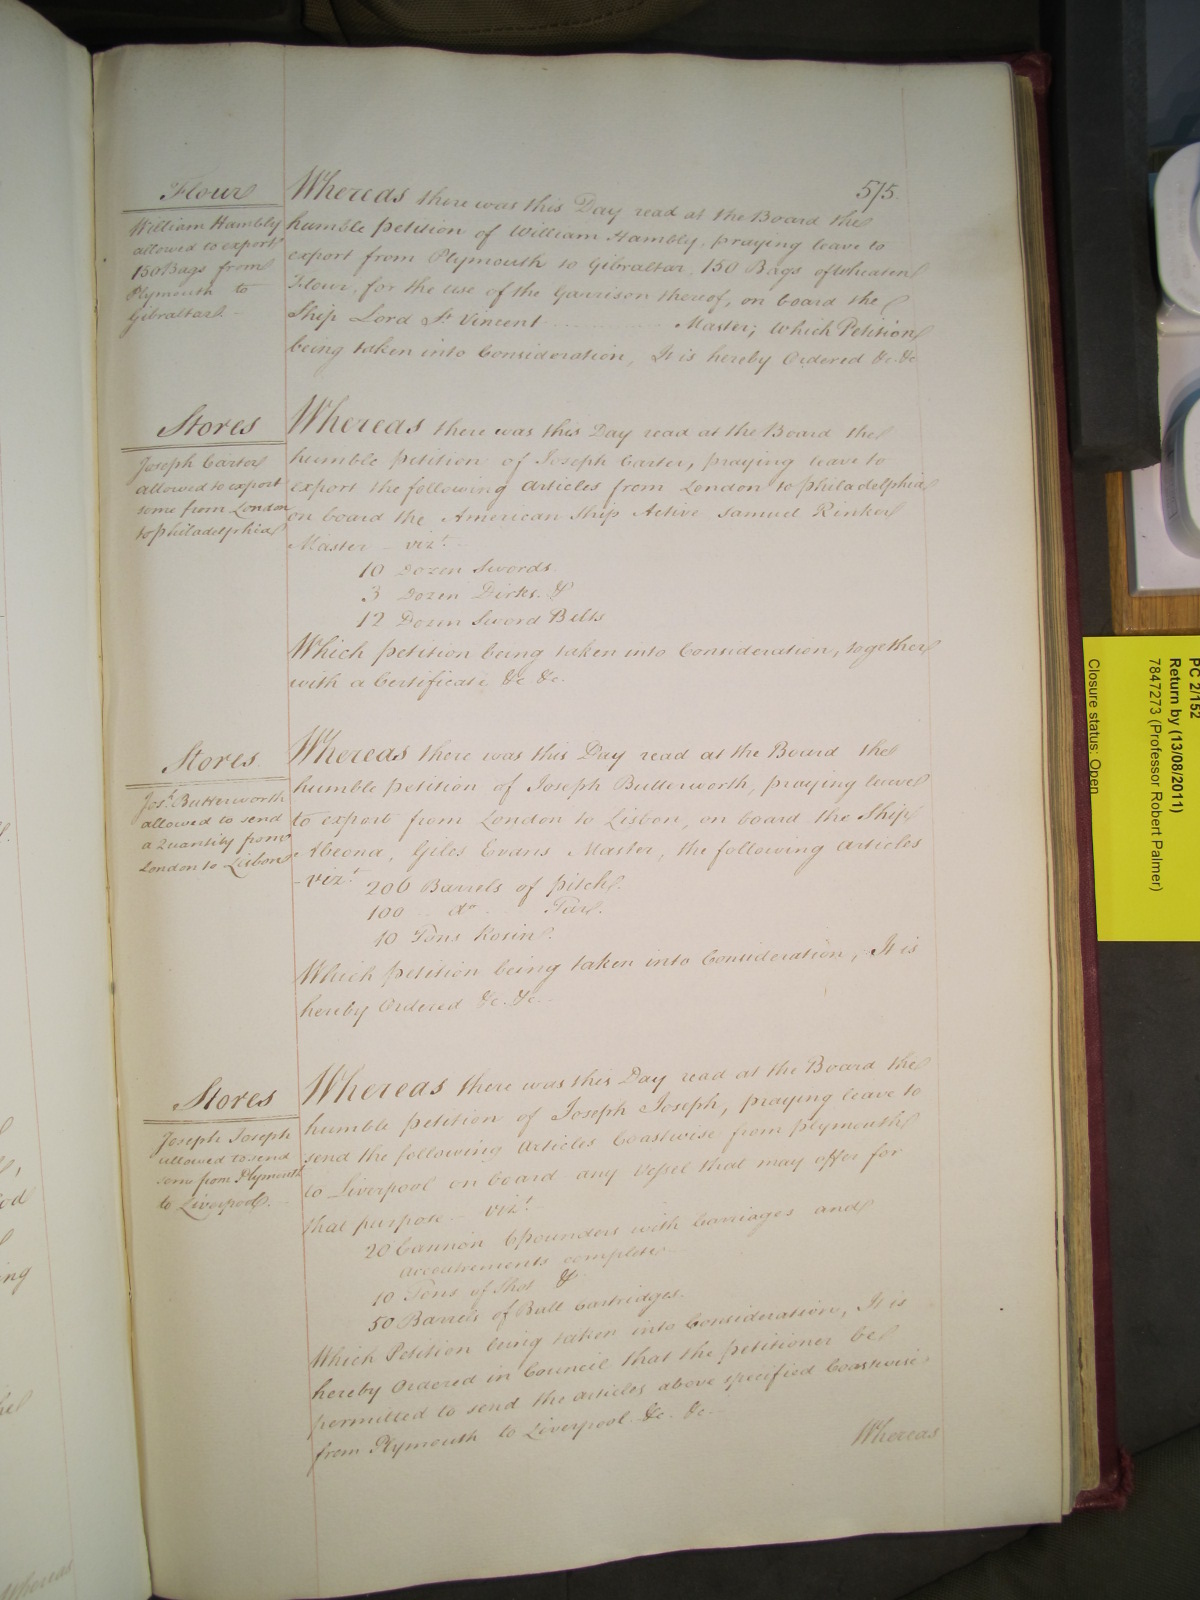 575.
Flour
William Hambly
allowed to export
150 Bags from
Plymouth to
Gibraltar.
Whereas there was this Day read at the Board the
humble petition of William Hambly, praying leave to
export from Plymouth to Gibraltar, 150 Bags of Wheaten
Flour, for the use of the Garrison thereof, on board the
Ship Lord St. Vincent ............ Master; which Petition
being taken into Consideration, It is hereby Ordered &c. &c
Stores
Joseph Carter
allowed to export
some from London
to Philadelphia
Whereas there was this Day read at the Board the
humble petition of Joseph Carter, praying leave to
export the following Articles from London to Philadelphia
on board the American Ship Active Samuel Rinker
Master - vizt.
10 Dozen Swords.
3 Dozen Dirks. &
12 Dozen Sword Belts
Which petition being taken into Consideration, together
with a Certificate &c &c.
Stores
Josh. Butterworth
allowed to send
a Quantity from
London to Lisbon
Whereas there was this Day read at the Board the
humble petition of Joseph Butterworth, praying leave
to export from London to Lisbon, on board the Ship
Abeona, Giles Evans Master, the following Articles
- vizt. 206 Barrels of pitch.
100 .. do .. Tar.
10 Tons Rosin.
Which petition being taken into Consideration, It is
hereby Ordered &c. &c.
Stores
Joseph Joseph
allowed to send
some from Plymouth
to Liverpool.
Whereas there was this Day read at the Board the
humble petition of Joseph Joseph, praying leave to
send the following Articles Coastwise from Plymouth
to Liverpool on board any Vessel that may offer for
that purpose - vizt.
20 Cannon 6 pounders with Carriages and
Accoutrements complete
10 Tons of Shot &
50 Barrels of Ball Cartridges.
Which Petition being taken into Consideration, It is
hereby Ordered in Council that the petitioner be
permitted to send the Articles above specified Coastwise
from Plymouth to Liverpool &c. &c.
Whereas
PC 2/152
Return by (13/08/2011)
7847273 (Professor Robert Palmer)
Closure status: Open
ing
Whereas